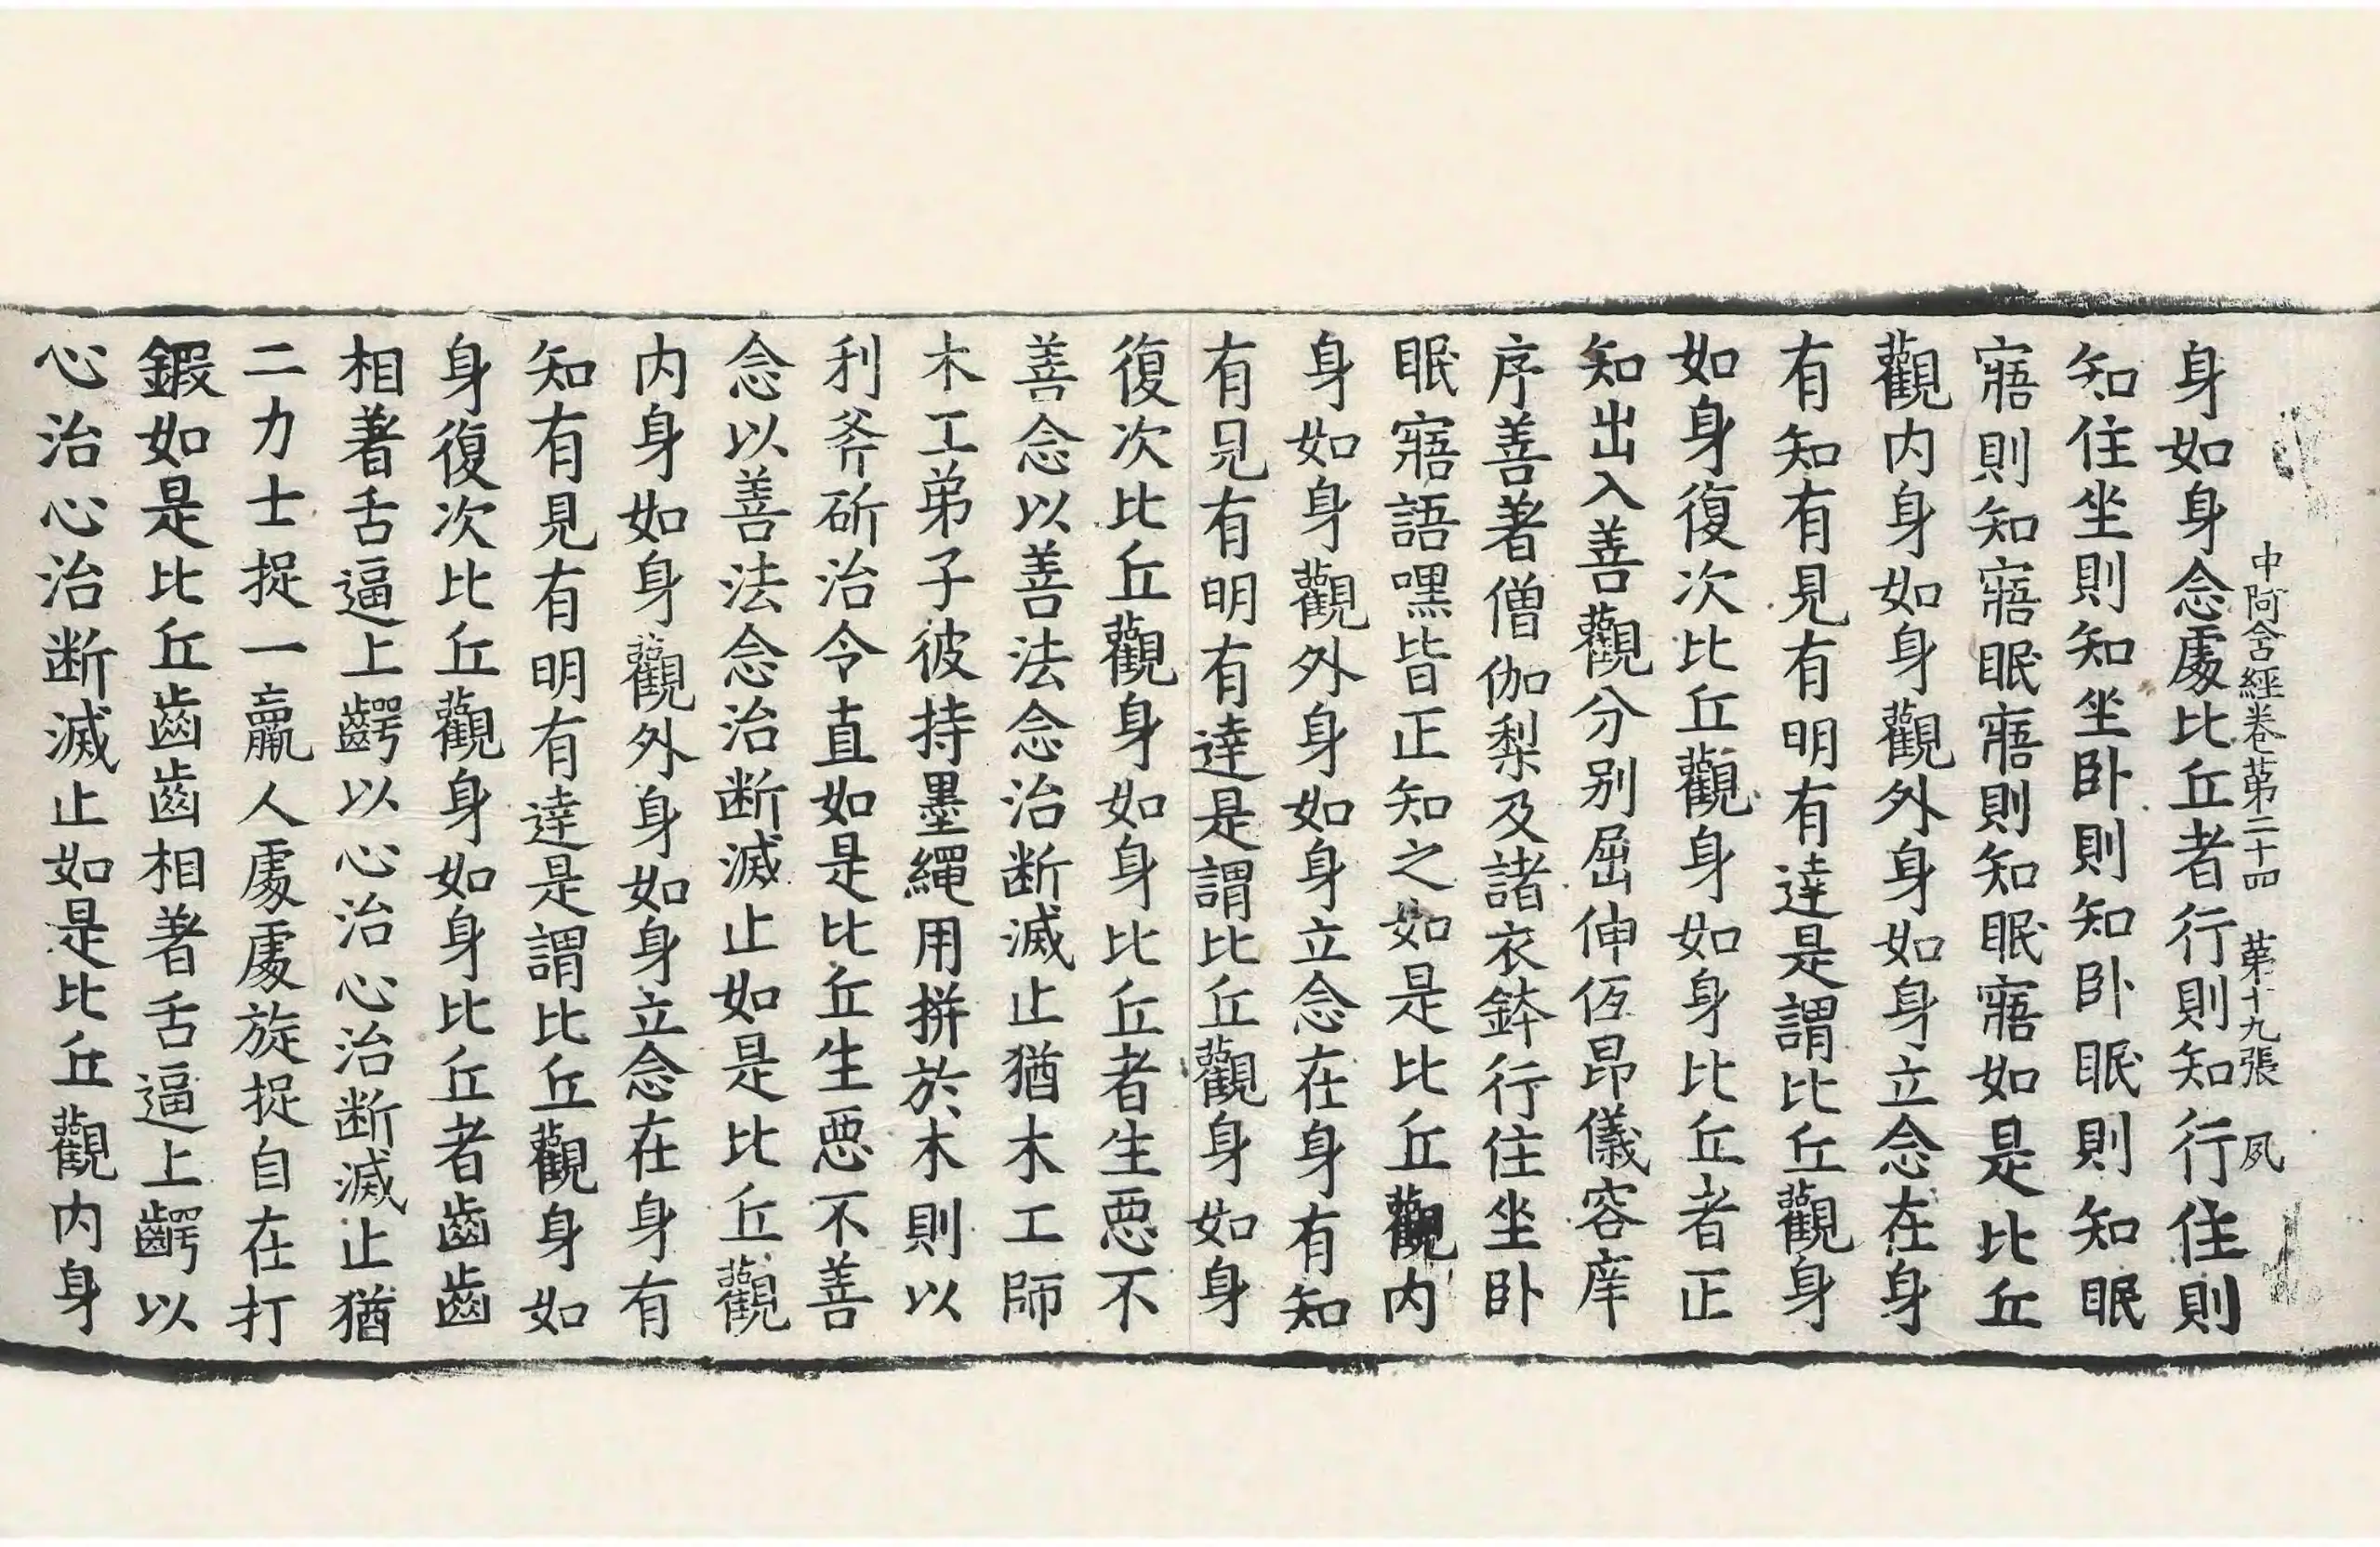 中阿含經卷第二十四　第十九張　夙
身如身念處比丘者行則知行住則
知住坐則知坐卧則知卧眠則知眠
寤則知寤眠寤則知眠寤如是比丘
觀内身如身觀外身如身立念在身
有知有見有明有達是謂比丘觀身
如身復次比丘觀身如身比丘者正
知出入善觀分别屈伸仾昂儀容庠
序善著僧伽梨及諸衣鉢行住坐卧
眠寤語嘿皆正知之如是比丘觀内
身如身觀外身如身立念在身有知
有見有明有達是謂比丘觀身如身
復次比丘觀身如身比丘者生惡不
善念以善法念治断滅止猶木工師
木工弟子彼持墨繩用拼於木則以
利斧斫治令直如是比丘生惡不善
念以善法念治断滅止如是比丘觀
内身如身觀外身如身立念在身有
知有見有明有達是謂比丘觀身如
身復次比丘觀身如身比丘者齒齒
相著舌逼上齶以心治心治断滅止猶
二力士捉一羸人處處旋捉自在打
鍜如是比丘齒齒相著舌逼上齶以
心治心治断滅止如是比丘觀内身